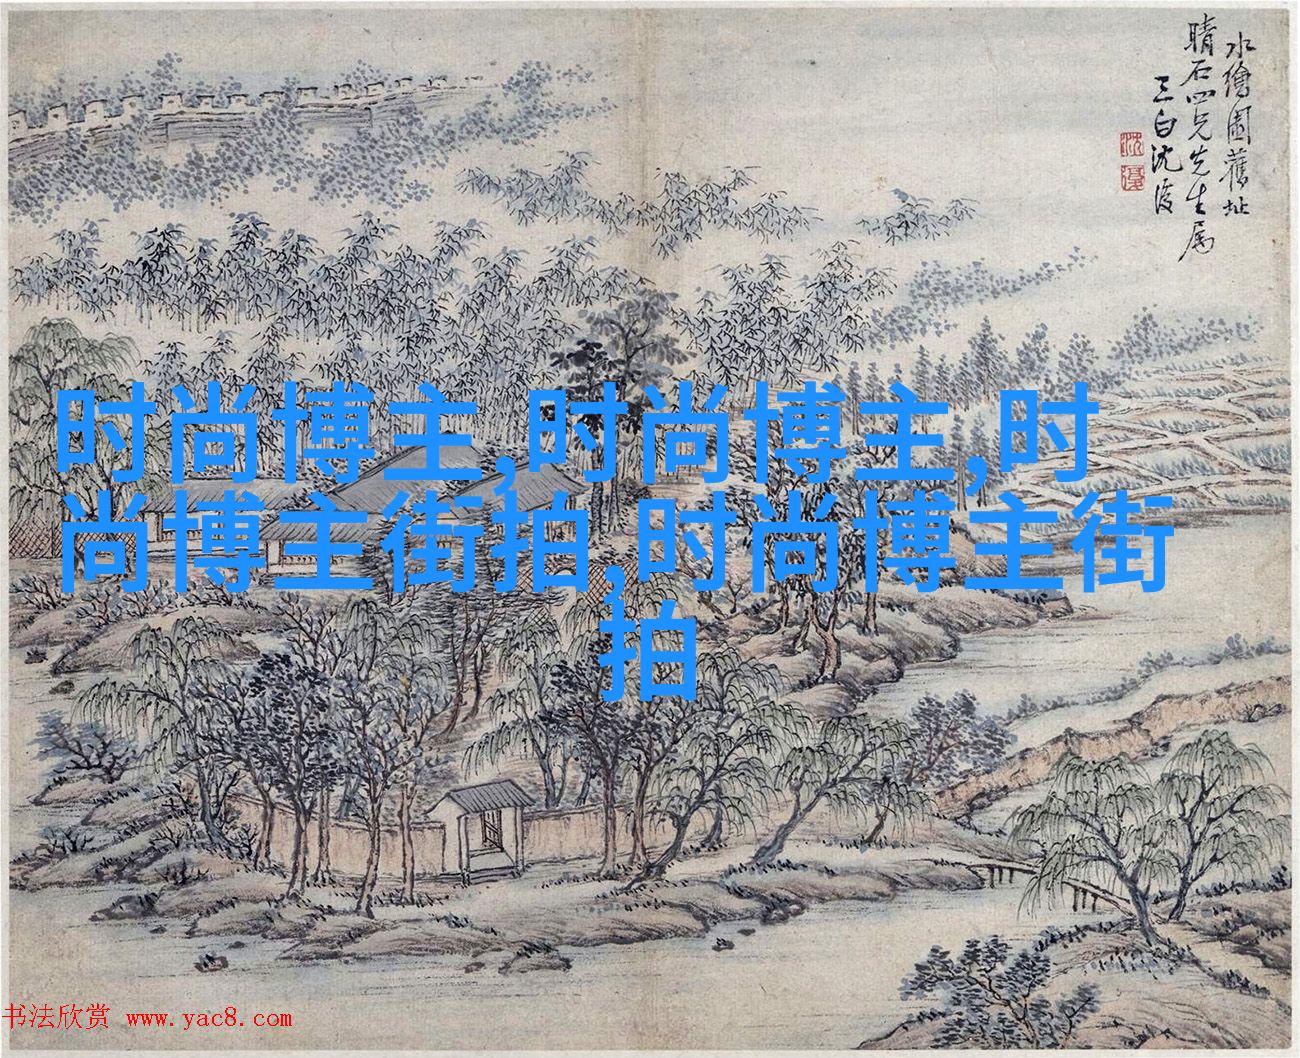 水繪園舊址
晴石四兄先生属
三白沈復
沈
復
时尚博主,时尚博主,时
尚博主街拍,时尚博主街
拍
书法欣赏 www.yac8.com